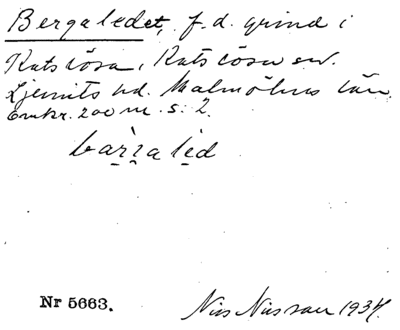 Bergaledet, f.d. grind i
Katslösa, Katslösa sn.
Ljunits hd. Malmöhus län.
Omkr. 200 m. s. 2.
bàr̀ꭓa lèd
Nr 5663.
Nils Nilsson 1934.